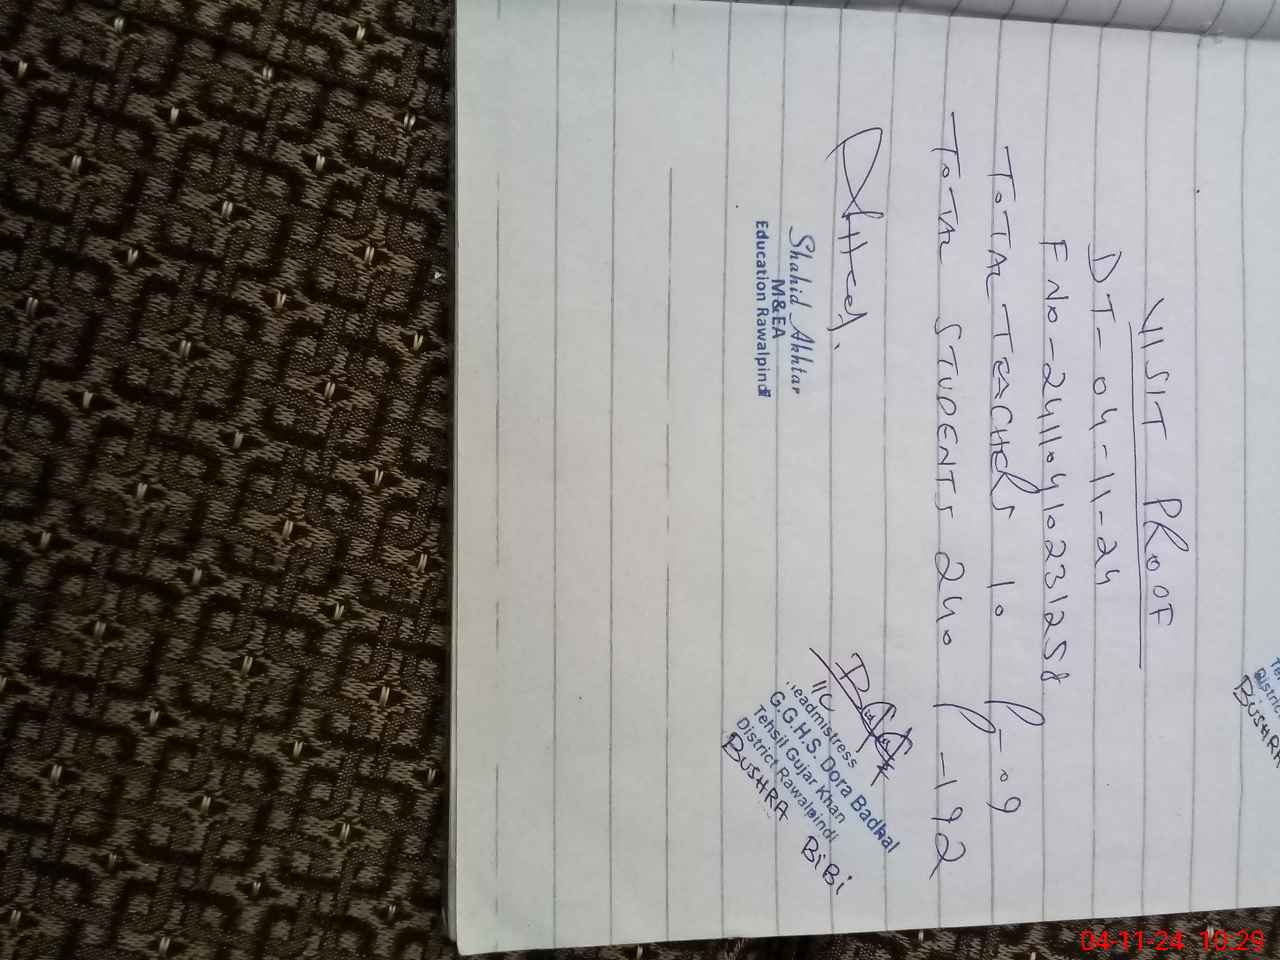 VISIT PROOF
DT-04-11-24
F NO-24110410231258
TOTAL TEACHERS 10 P-09
TOTAL STUDENTS 240 P-192
Shahid Akhtar
M&EA
Education Rawalpindi
I/C
Headmistress
G.G.H.S. Dora Badhal
Tehsil Gujar Khan
District Rawalpindi
BUSHRA BiBi
Te
District
BUSHRA
04-11-24 10:29